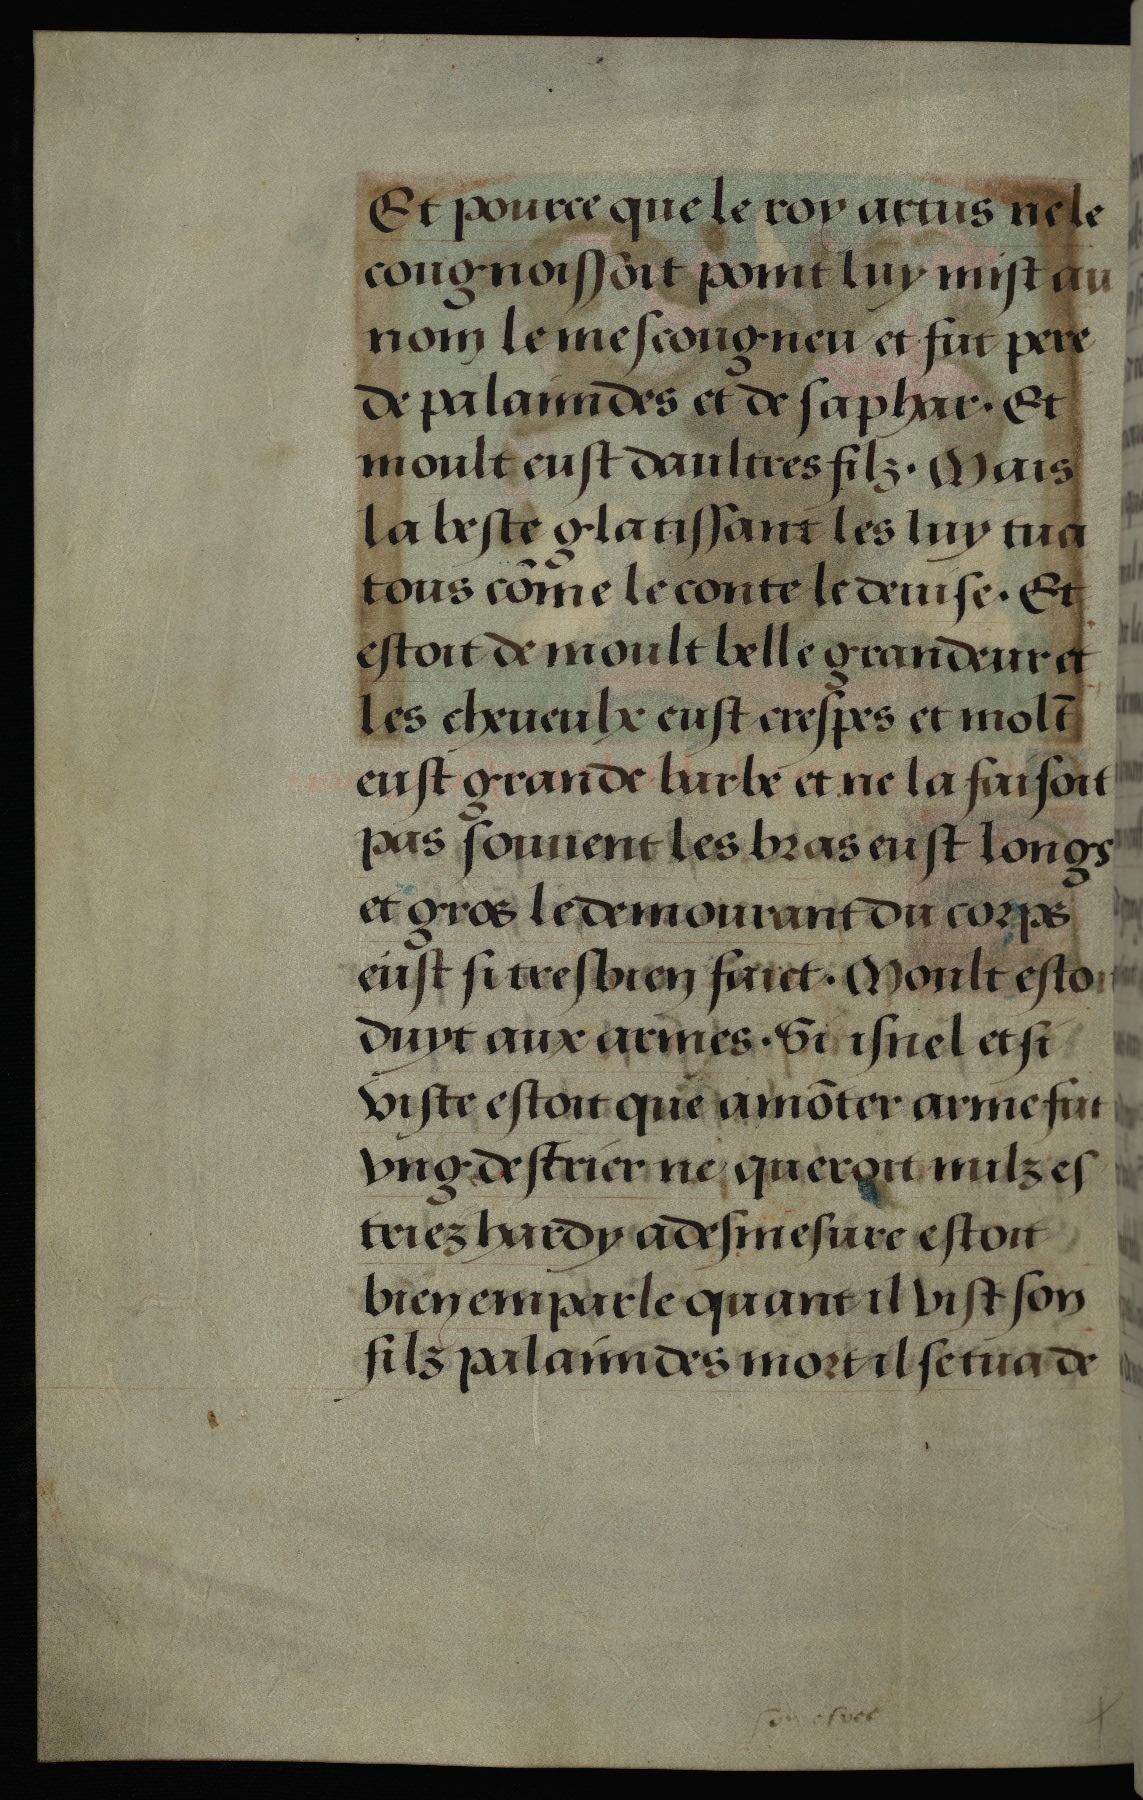 Et pource que le roy artus ne le
congnoissoit point luy mist au
nom le mescongneu et fut pere
de palamides et de saphar. Et
moult eust daultres filz. Mais
la beste glatissant les luy tua
tous cõme le conte le deuise. Et
estoit de moult belle grandeur et
les cheueulx eust crespes et molt̄
eust grande barbe et ne la faisoit
pas souuent les bras eust longs
et gros le demourant du corps
eust si tresbien faict. Moult estoit
duyt aux armes. Si isnel et si
viste estoit que a mõter arme sur
vng destrier ne queroit nulz es
triez hardy a desmesure estoit
bien emparle quant il vist son
filz palamides mort il se tua de
son espee